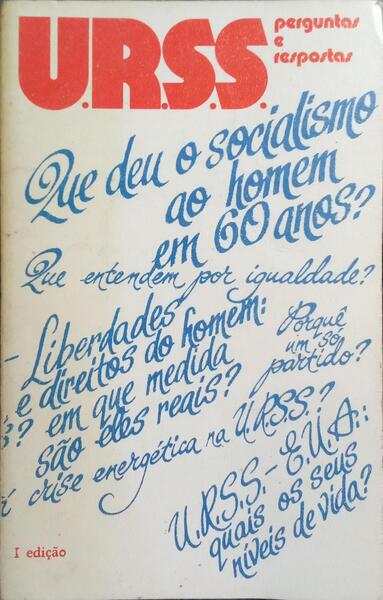 U.R.S.S.
perguntas
e
respostas
Que deu o socialismo
ao homem
em 60 anos?
Que entendem por igualdade?
- Liberdades
e direitos do homem:
s? em que medida
são eles reais?
Porquê
um só
partido?
crise energética na U.R.S.S.?
U.R.S.S.-E.U.A.:
quais os seus
níveis de vida?
I edição